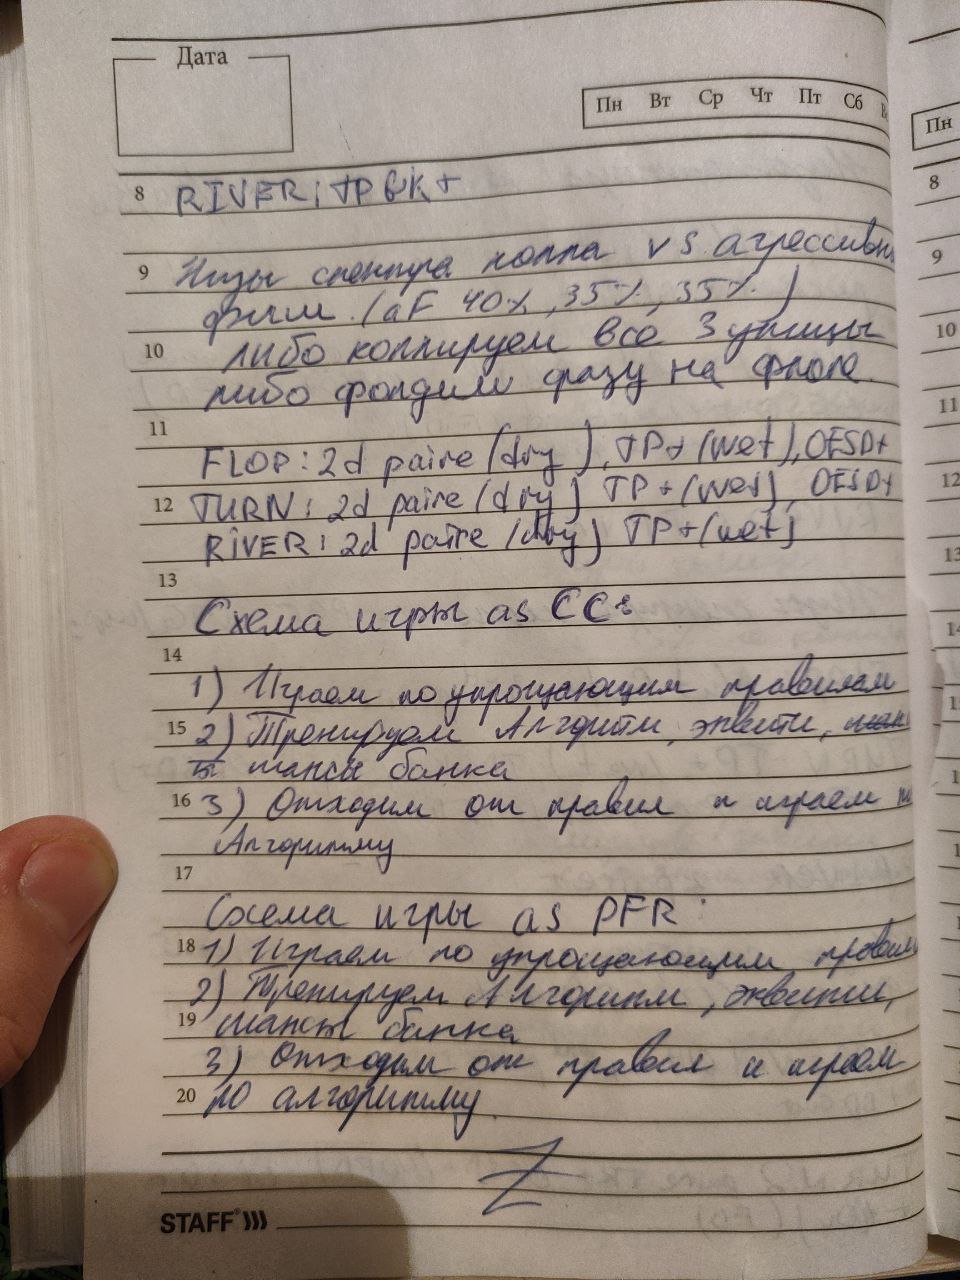 Дата
Пн Вт Ср Чт Пт Сб
Пн
8 RIVER: TPGK+
8
9 Низы спектра колла vs агрессивн
9
фиш. (aF 40%, 35%, 35%.)
10 либо коллируем все 3 улицы
10
либо фолдим сразу на флопе.
11
11
FLOP: 2d paire (dry), TP+ (wet), OESD+
12 TURN: 2d paire (dry) TP+ (wet), OESD+
12
RIVER: 2d paire (dry) TP+ (wet)
13
13
Схема игры as CC:
14
14
1) Играем по упрощающим правилам
15 2) Тренируем Алгоритм, эквити,
шансы банка
16 3) Отходим от правил и играем по
Алгоритму
17
Схема игры as PFR:
18 1) Играем по упрощающим правилам
2) Тренируем Алгоритм, эквити,
19 шансы банка
3) Отходим от правил и играем
20 по алгоритму.
STAFF